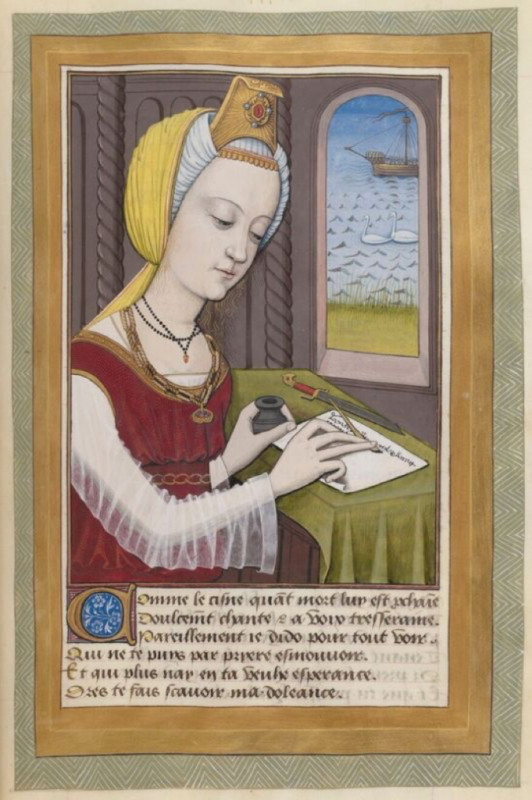 Comme le cisne quãt mort luy est pchaĩe
Doulcemt chante & a voix tresseraine.
Pareillement ie dido pour tout voir.
Qui ne te puys par pryere esmouvoir.
Et qui plus nay en ta veuhe esperance.
Ores te fais scavoir ma doleance.